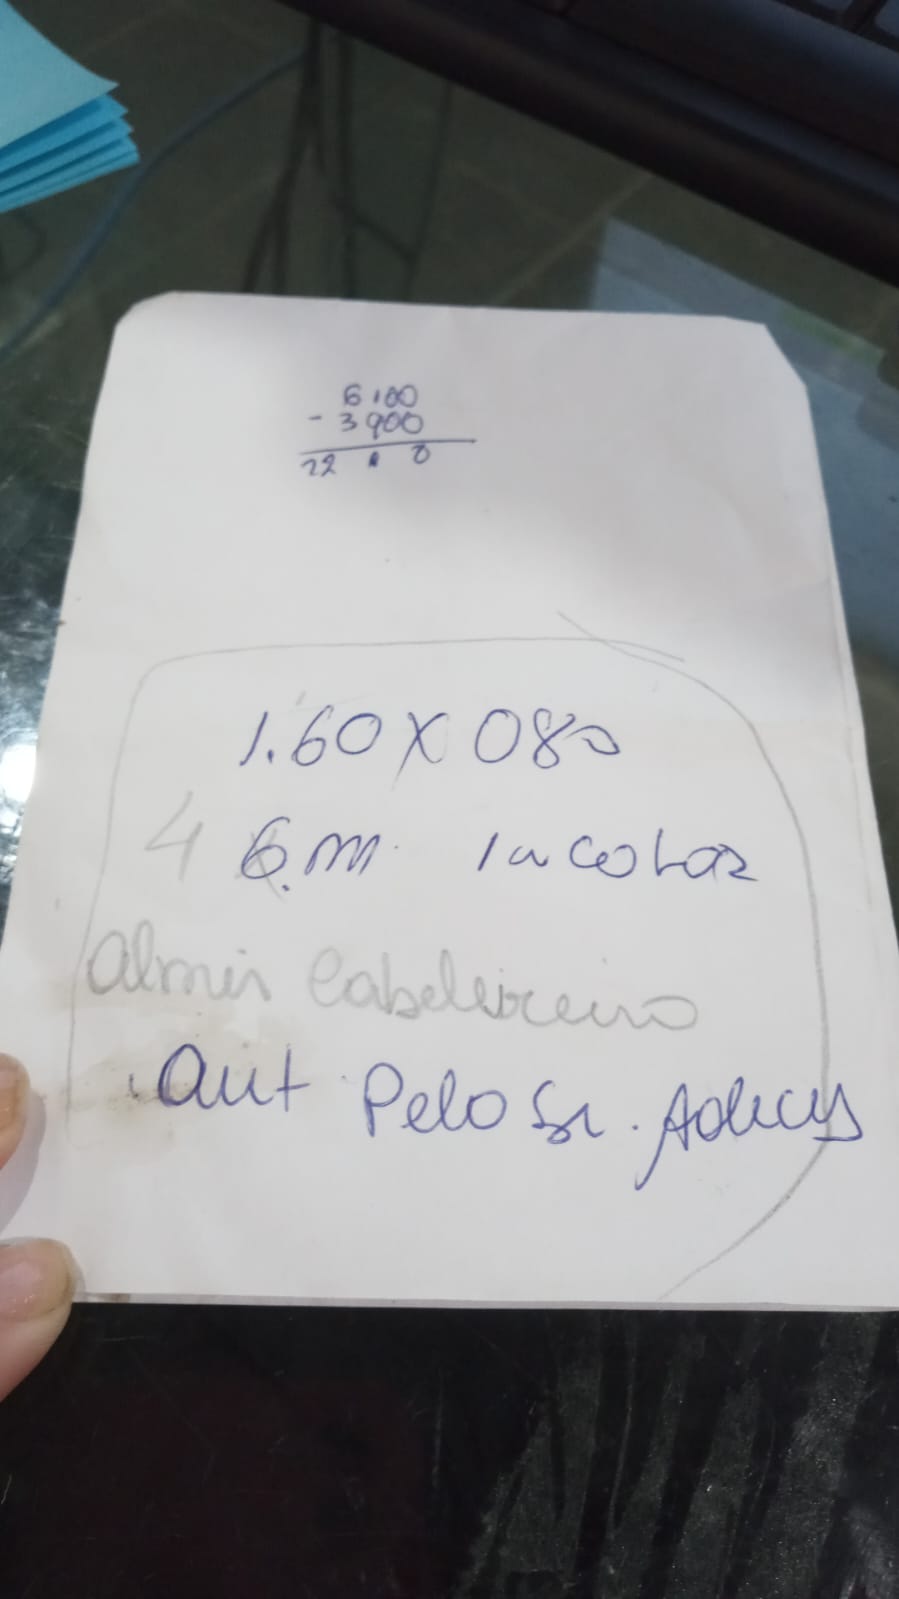 6100
- 3900
22 0
1.60 X 080
4 6.m. Incolor
Almir Cabeleireiro
aut Pelo Sr.